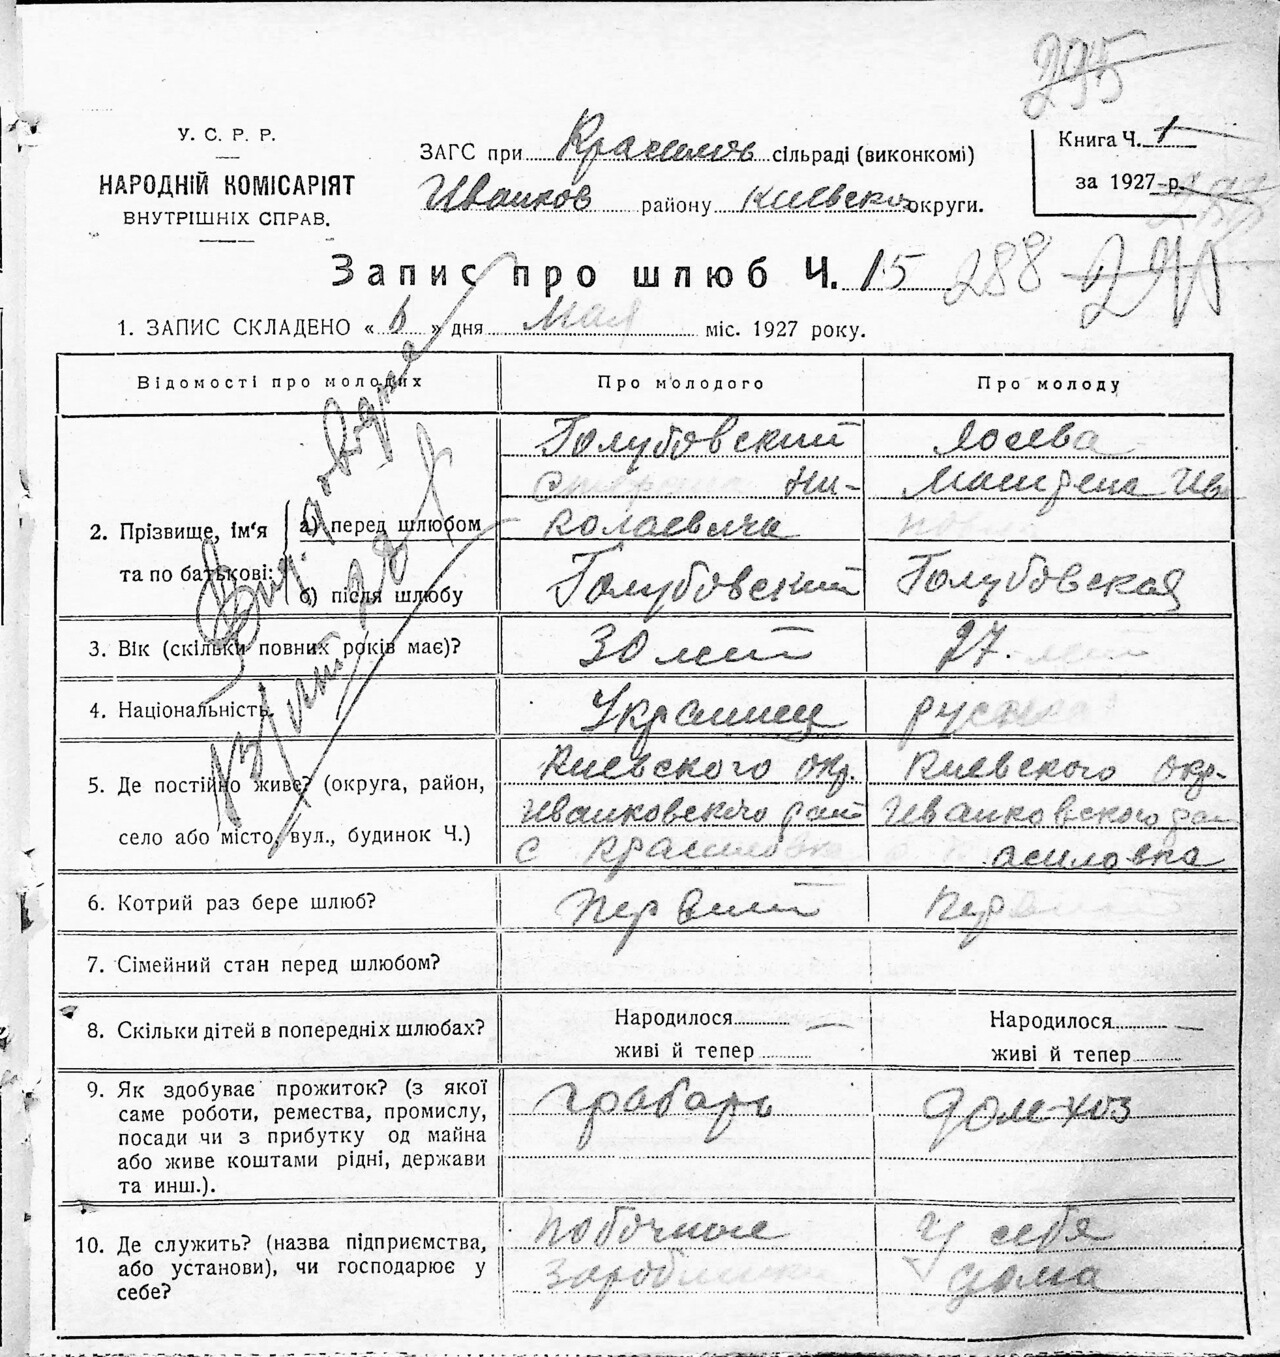 295
У. С. Р. Р.
НАРОДНІЙ КОМІСАРІЯТ
ВНУТРІШНІХ СПРАВ.
ЗАГС при Красилов сільраді (виконкомі)
Иванков району Киевской округи.
Книга Ч. 1
за 1927 р.
Запис про шлюб Ч. 15 288
1. ЗАПИС СКЛАДЕНО « 6 » дня Мая міс. 1927 року.
Відомості про молодих
Про молодого
Про молоду
2. Прізвище, ім'я та по батькові:
а) перед шлюбом
Голубовский
Ни-
колаевича
Ива
б) після шлюбу
Голубовский
Голубовская
3. Вік (скільки повних років має)?
30 лет
27. лет
4. Національність
Украинец
русская
5. Де постійно живе? (округа, район,
село або місто, вул., будинок Ч.)
Киевского окр.
Иванковского рай
с Красиловка
Киевского окр.
Иванковского рай
асиловка
6. Котрий раз бере шлюб?
Первый
Первый
7. Сімейний стан перед шлюбом?
8. Скільки дітей в попередніх шлюбах?
Народилося —
живі й тепер
Народилося —
живі й тепер
9. Як здобуває прожиток? (з якої
саме роботи, ремества, промислу,
посади чи з прибутку од майна
або живе коштами рідні, держави
та инш.).
грабарь
дом-хоз
10. Де служить? (назва підприємства,
або установи), чи господарює у
себе?
побочные
заработки
У себя
дома